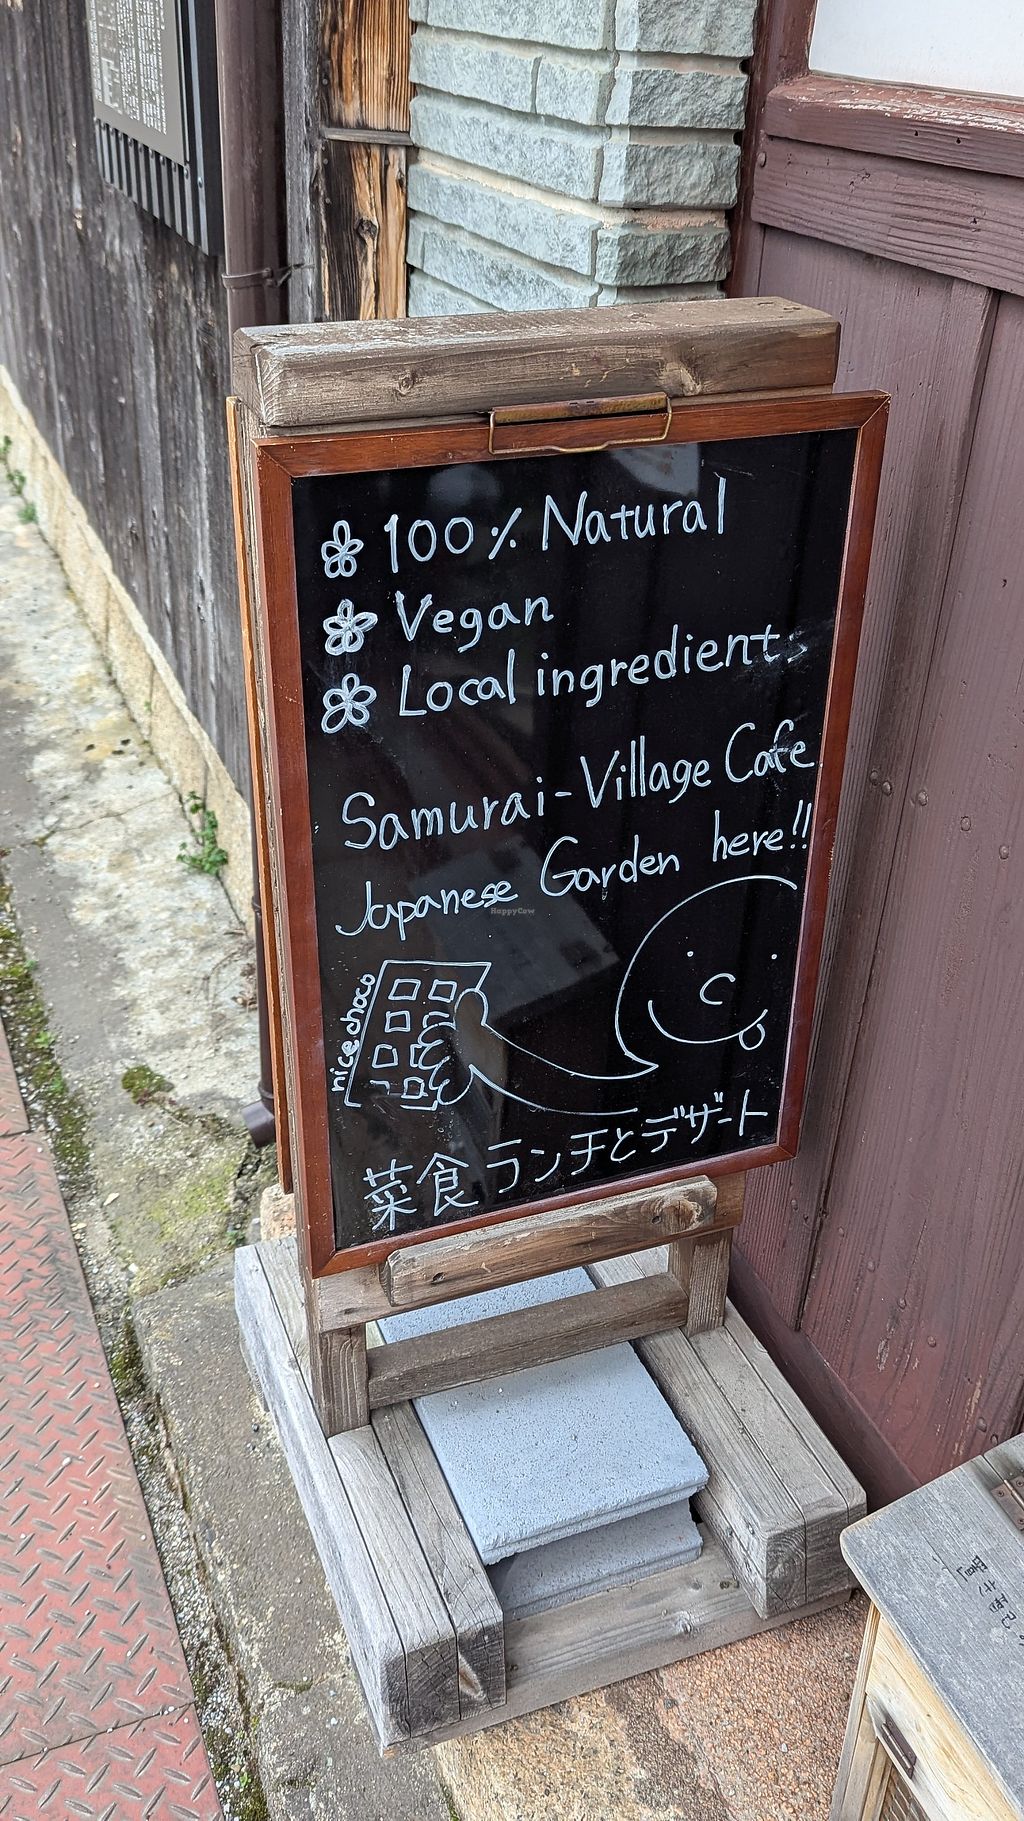 100% Natural
Vegan
Local ingredients
Samurai-Village Cafe
Japanese Garden here!!
HappyCow
nice choco
菜食ランチとデザート